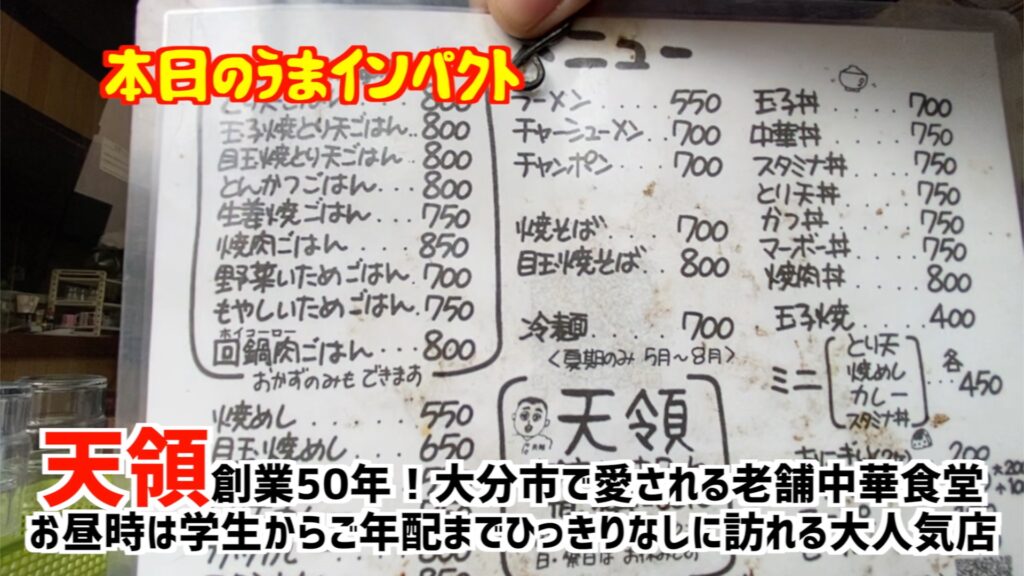 本日のうまインパクト
玉子焼とり天ごはん..800
目玉焼とり天ごはん..800
とんかつごはん...800
生姜焼ごはん...750
焼肉ごはん...850
野菜いためごはん.700
もやしいためごはん.750
ホイコーロー
回鍋肉ごはん...800
おかずのみもできます
焼めし....550
目玉焼めし....650
メニュー
ラーメン....550
チャーシューメン..700
チャンポン....700
焼そば....700
目玉焼そば..800
冷麺....700
<夏期のみ 5月~8月>
天領
玉子丼....700
中華丼....750
スタミナ丼...750
とり天丼....750
カツ丼....750
マーボー丼...750
焼肉丼....800
玉子焼....400
ミニ
とり天
焼めし
カレー
スタミナ丼
各
450
200
天領創業50年!大分市で愛される老舗中華食堂
お昼時は学生からご年配までひっきりなしに訪れる大人気店